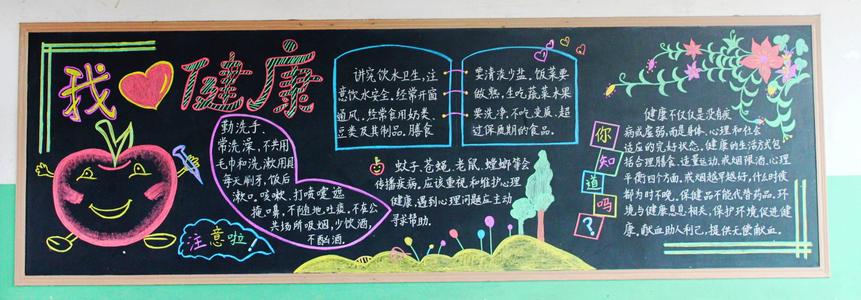 我 健康
勤洗手、
常洗澡,不共用
毛巾和洗漱用具
每天刷牙,饭后
漱口。咳嗽、打喷嚏遮
掩口鼻,不随地吐痰,不在公
共场所吸烟,少饮酒,
不酗酒。
注意啦!
讲究饮水卫生,注
意饮水安全。经常开窗
通风,经常食用奶类、
豆类及其制品。膳食
要清淡少盐。饭菜要
做熟,生吃蔬菜水果
要洗净,不吃变质、超
过保质期的食品。
蚊子、苍蝇、老鼠、蟑螂等会
传播疾病,应该重视和维护心理
健康,遇到心理问题应主动
寻求帮助。
你
知
道
吗
?
健康不仅仅是没有疾
病或虚弱,而是身体、心理和社会
适应的完好状态。健康的生活方式包
括合理膳食、适量运动、戒烟限酒、心理
平衡四个方面,戒烟越早越好,什么时候
都为时不晚,保健品不能代替药品。环
境与健康息息相关,保护环境促进健
康。献血助人利己,提供无偿献血。